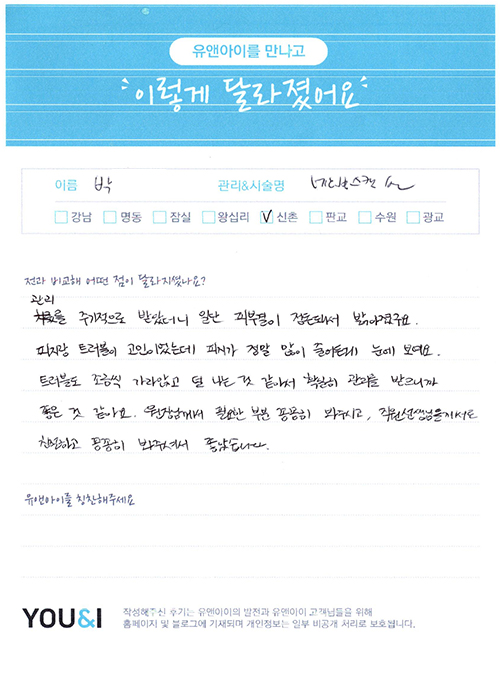 유앤아이를 만나고
이렇게 달라졌어요
이름 박 관리&시술명
강남 명동 잠실 왕십리 신촌 판교 수원 광교
전과 비교해 어떤 점이 달라지셨나요?
관리
를 주기적으로 받았더니 일단 피부결이 정돈되서 밝아졌구요.
피지랑 트러블이 고민이었는데 피지가 정말 많이 줄어든게 눈에 보여요.
트러블도 조금씩 가라앉고 덜 나는 것 같아서 확실히 관리를 받으니까
좋은 것 같아요. 원장님께서 필요한 부분 꼼꼼히 봐주시고, 직원선생님들께서도
친절하고 꼼꼼히 봐주셔서 좋았습니다.
유앤아이를 칭찬해주세요
YOU&I
작성해주신 후기는 유앤아이의 발전과 유앤아이 고객님들을 위해
홈페이지 및 블로그에 기재되며 개인정보는 일부 비공개 처리로 보호됩니다.